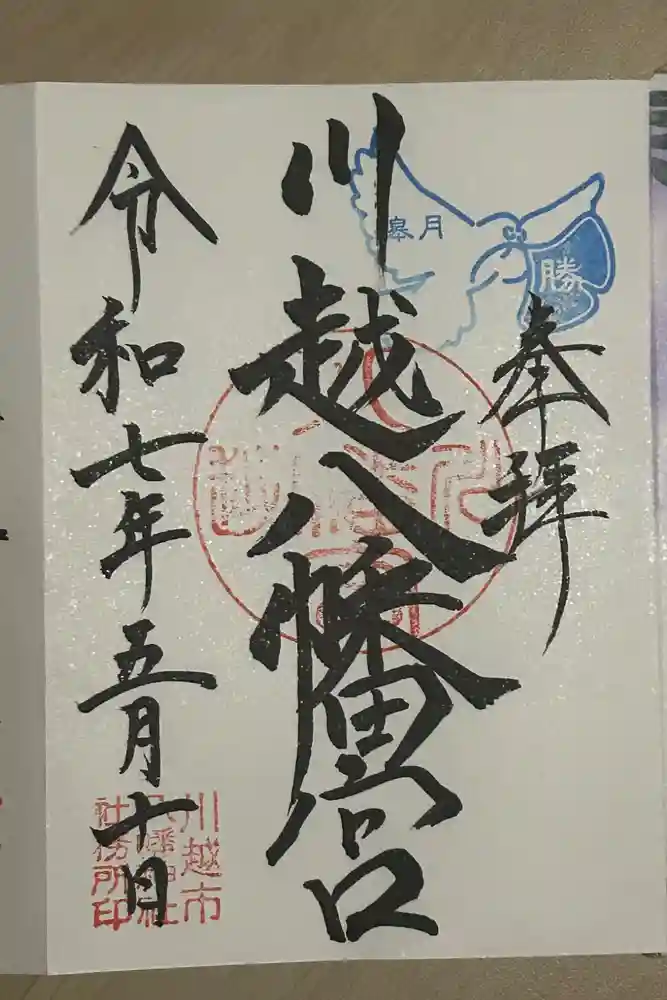 皐月
勝
奉拝
川越八幡宮
令和七年五月十日
川越市
八幡神社
社務所印